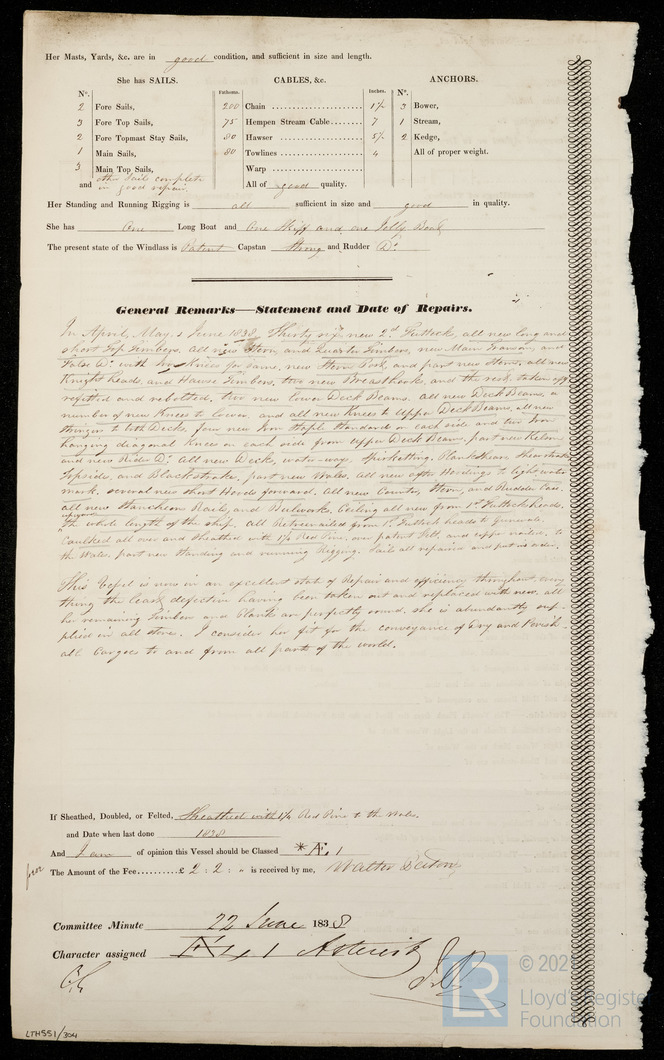 Her Masts, Yards, &c. are in good condition, and sufficient in size and length.
She has SAILS.
CABLES, &c.
ANCHORS.
No.
Fathoms.
Inches.
No.
2 Fore Sails,
200 Chain 1 1/4
3 Bower,
3 Fore Top Sails,
75 Hempen Stream Cable 7
1 Stream,
2 Fore Topmast Stay Sails,
80 Hawser 5 1/2
2 Kedge,
1 Main Sails,
80 Towlines 4
All of proper weight.
3 Main Top Sails,
Warp
and other Sail complete in good repair
All of good quality.
Her Standing and Running Rigging is all sufficient in size and good in quality.
She has One Long Boat and One Skiff and one Jolly Boat
The present state of the Windlass is Patent Capstan Strong and Rudder Do.
General Remarks—Statement and Date of Repairs.
In April, May, & June 1838, Thirty six new 2d Futtock, all new long and
short Top Timbers, all new Stern, and Quarter Timbers, new Main Transom, and
False Do. with Iron Knees for same, new Stern Post, and part new Stem, all new
Knight heads, and Hawse Timbers, two new Breasthooks, and the rest taken off
refitted and rebolted, two new lower Deck Beams, all new Deck Beams, a
number of new Knees to lower, and all new Knees to Upper Deck Beams, all new
to both Decks, four new Iron Staple Standard on each side and two Iron
hanging diagonal Knees on each side from Upper Deck Beams, part new Kelson
and new Rider Do. all new Decks, water-ways, Spirketting, Planksheer, Sheerstrake
Topside, and Blackstrake, part new Wales, all new after Hoodings to light water
mark, several new short Hoods forward. All new Counter, Stern, and Rudder Case.
all new Stancheons Rails, and Bulworks. Ceiling all new from 1st Futtock heads
upward
the whole length of the ship. all Retreenailed from 1st Futtock heads to Gunwale.
Caulked all over and sheathed with 1 1/4 Red Pine, over patent Felt, and to
the Wales. part new Standing and running Rigging. Sail all repaired and put in order.
This Vessel is now in an excellent state of Repair and efficiency throughout, every
thing the least defective having been taken out and replaced with new, all
her remaining Timbers and Plank are perfectly sound. she is abundantly sup-
plied in all stores. I consider her fit for the conveyance of Dry and Perish-
able Cargoes to and from all parts of the world.
If Sheathed, Doubled, or Felted, Sheathed with 1 1/4 Red Pine to the Wales.
and Date when last done 1838
And I am of opinion this Vessel should be Classed * Æ 1
The Amount of the Fee £ 2 : 2 : " is received by me, Walter
Committee Minute 22 June 1838
Character assigned Æ 1 Asterisk
LTH551/304
LR
© 202
Lloyd's Register
Foundation